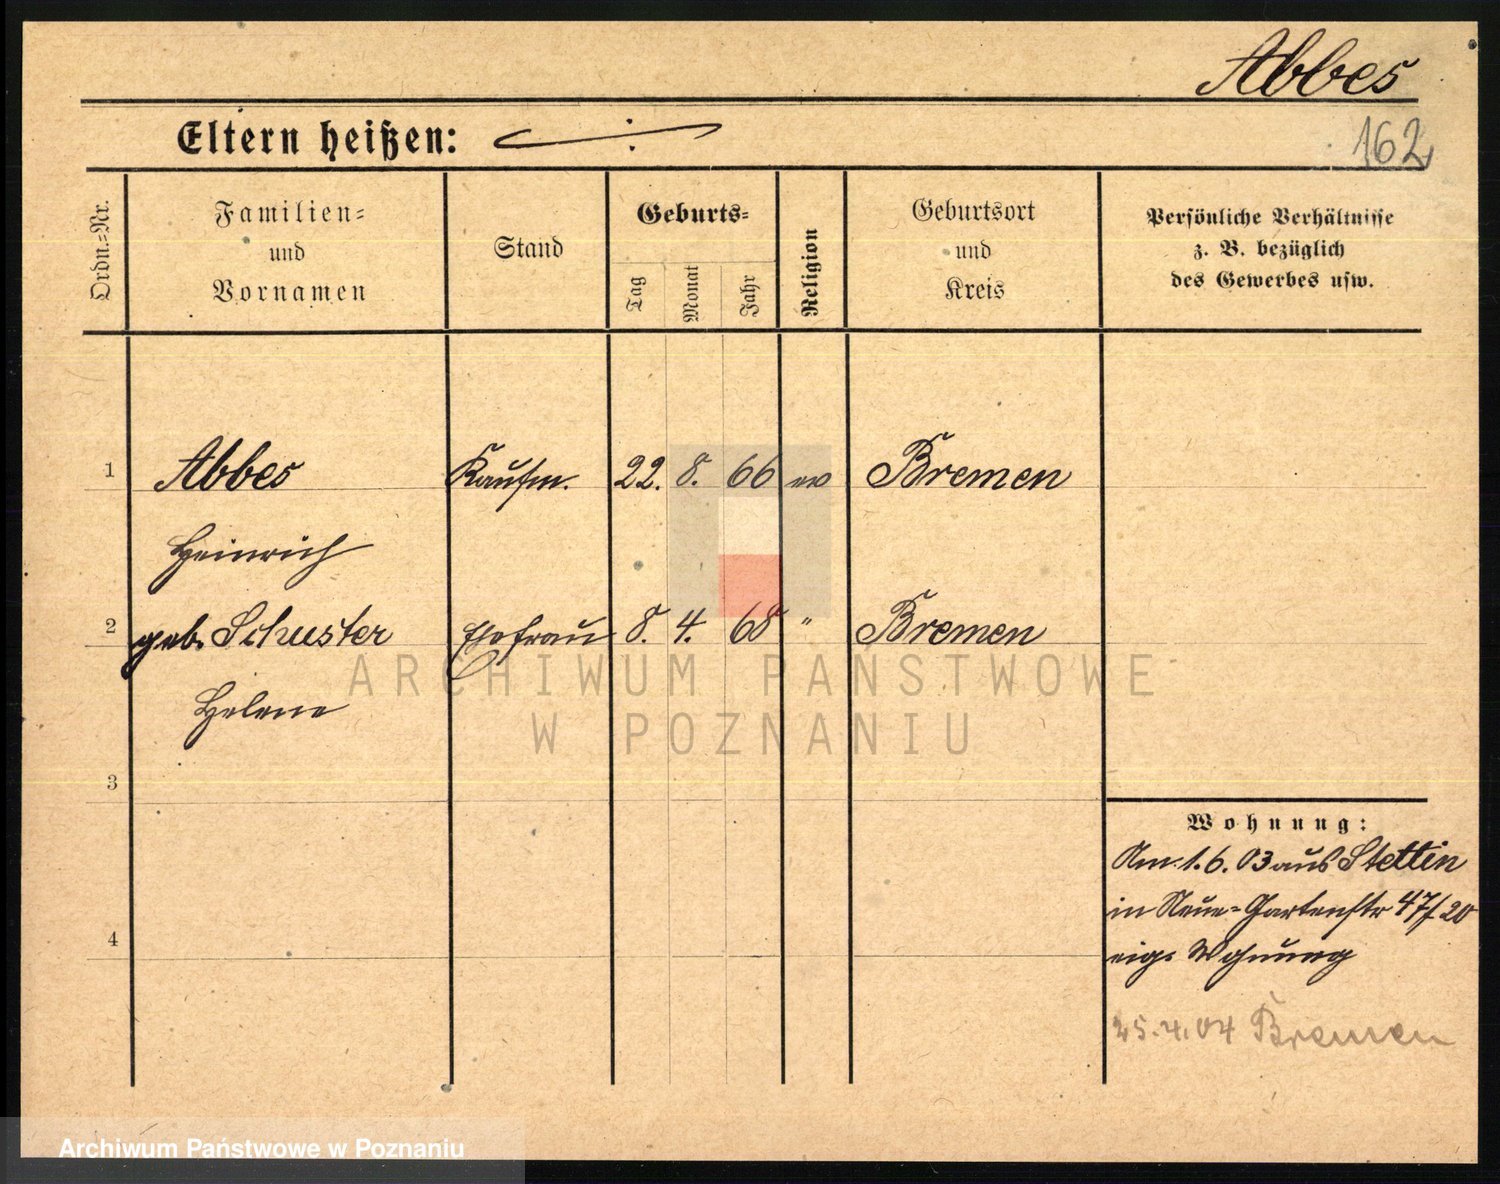 Abbes
Eltern heißen:
162
Ordn.-Nr.
Familien-
und
Vornamen
Stand
Geburts-
Tag
Monat
Jahr
Religion
Geburtsort
und
Kreis
Persönliche Verhältnisse
z. B. bezüglich
des Gewerbes usw.
1 Abbes Kaufm. 22. 8. 66 ev Bremen
Heinrich
2 geb. Schuster Ehefrau 8. 4. 68 " Bremen
Helene
ARCHIWUM PAŃSTWOWE
W POZNANIU
3
Wohnung:
Am 1.6.03 aus Stettin
in Neue-Gartenstr 47/20
4
eig. Wohnung
25.4.04 Bremen
Archiwum Państwowe w Poznaniu